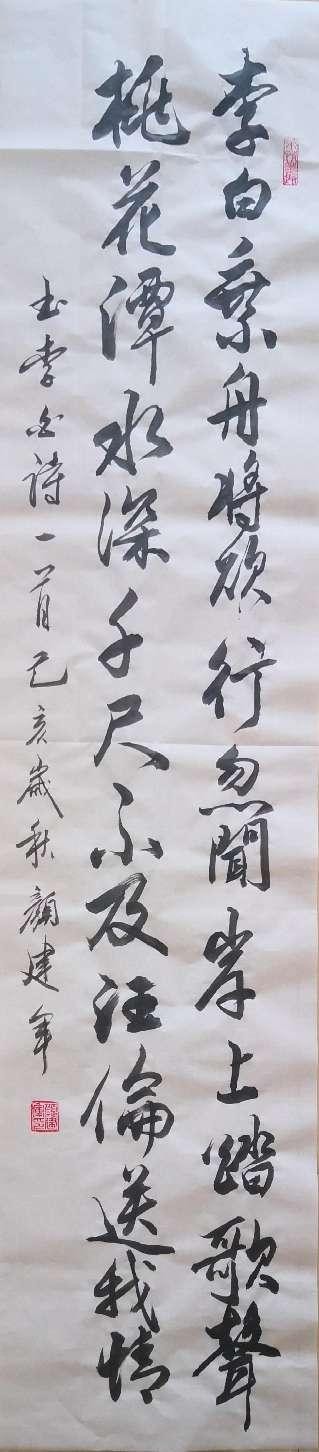 李白乘舟將欲行忽聞岸上踏歌聲
桃花潭水深千尺不及汪倫送我情
书李白诗一首己亥歲秋顏建軍